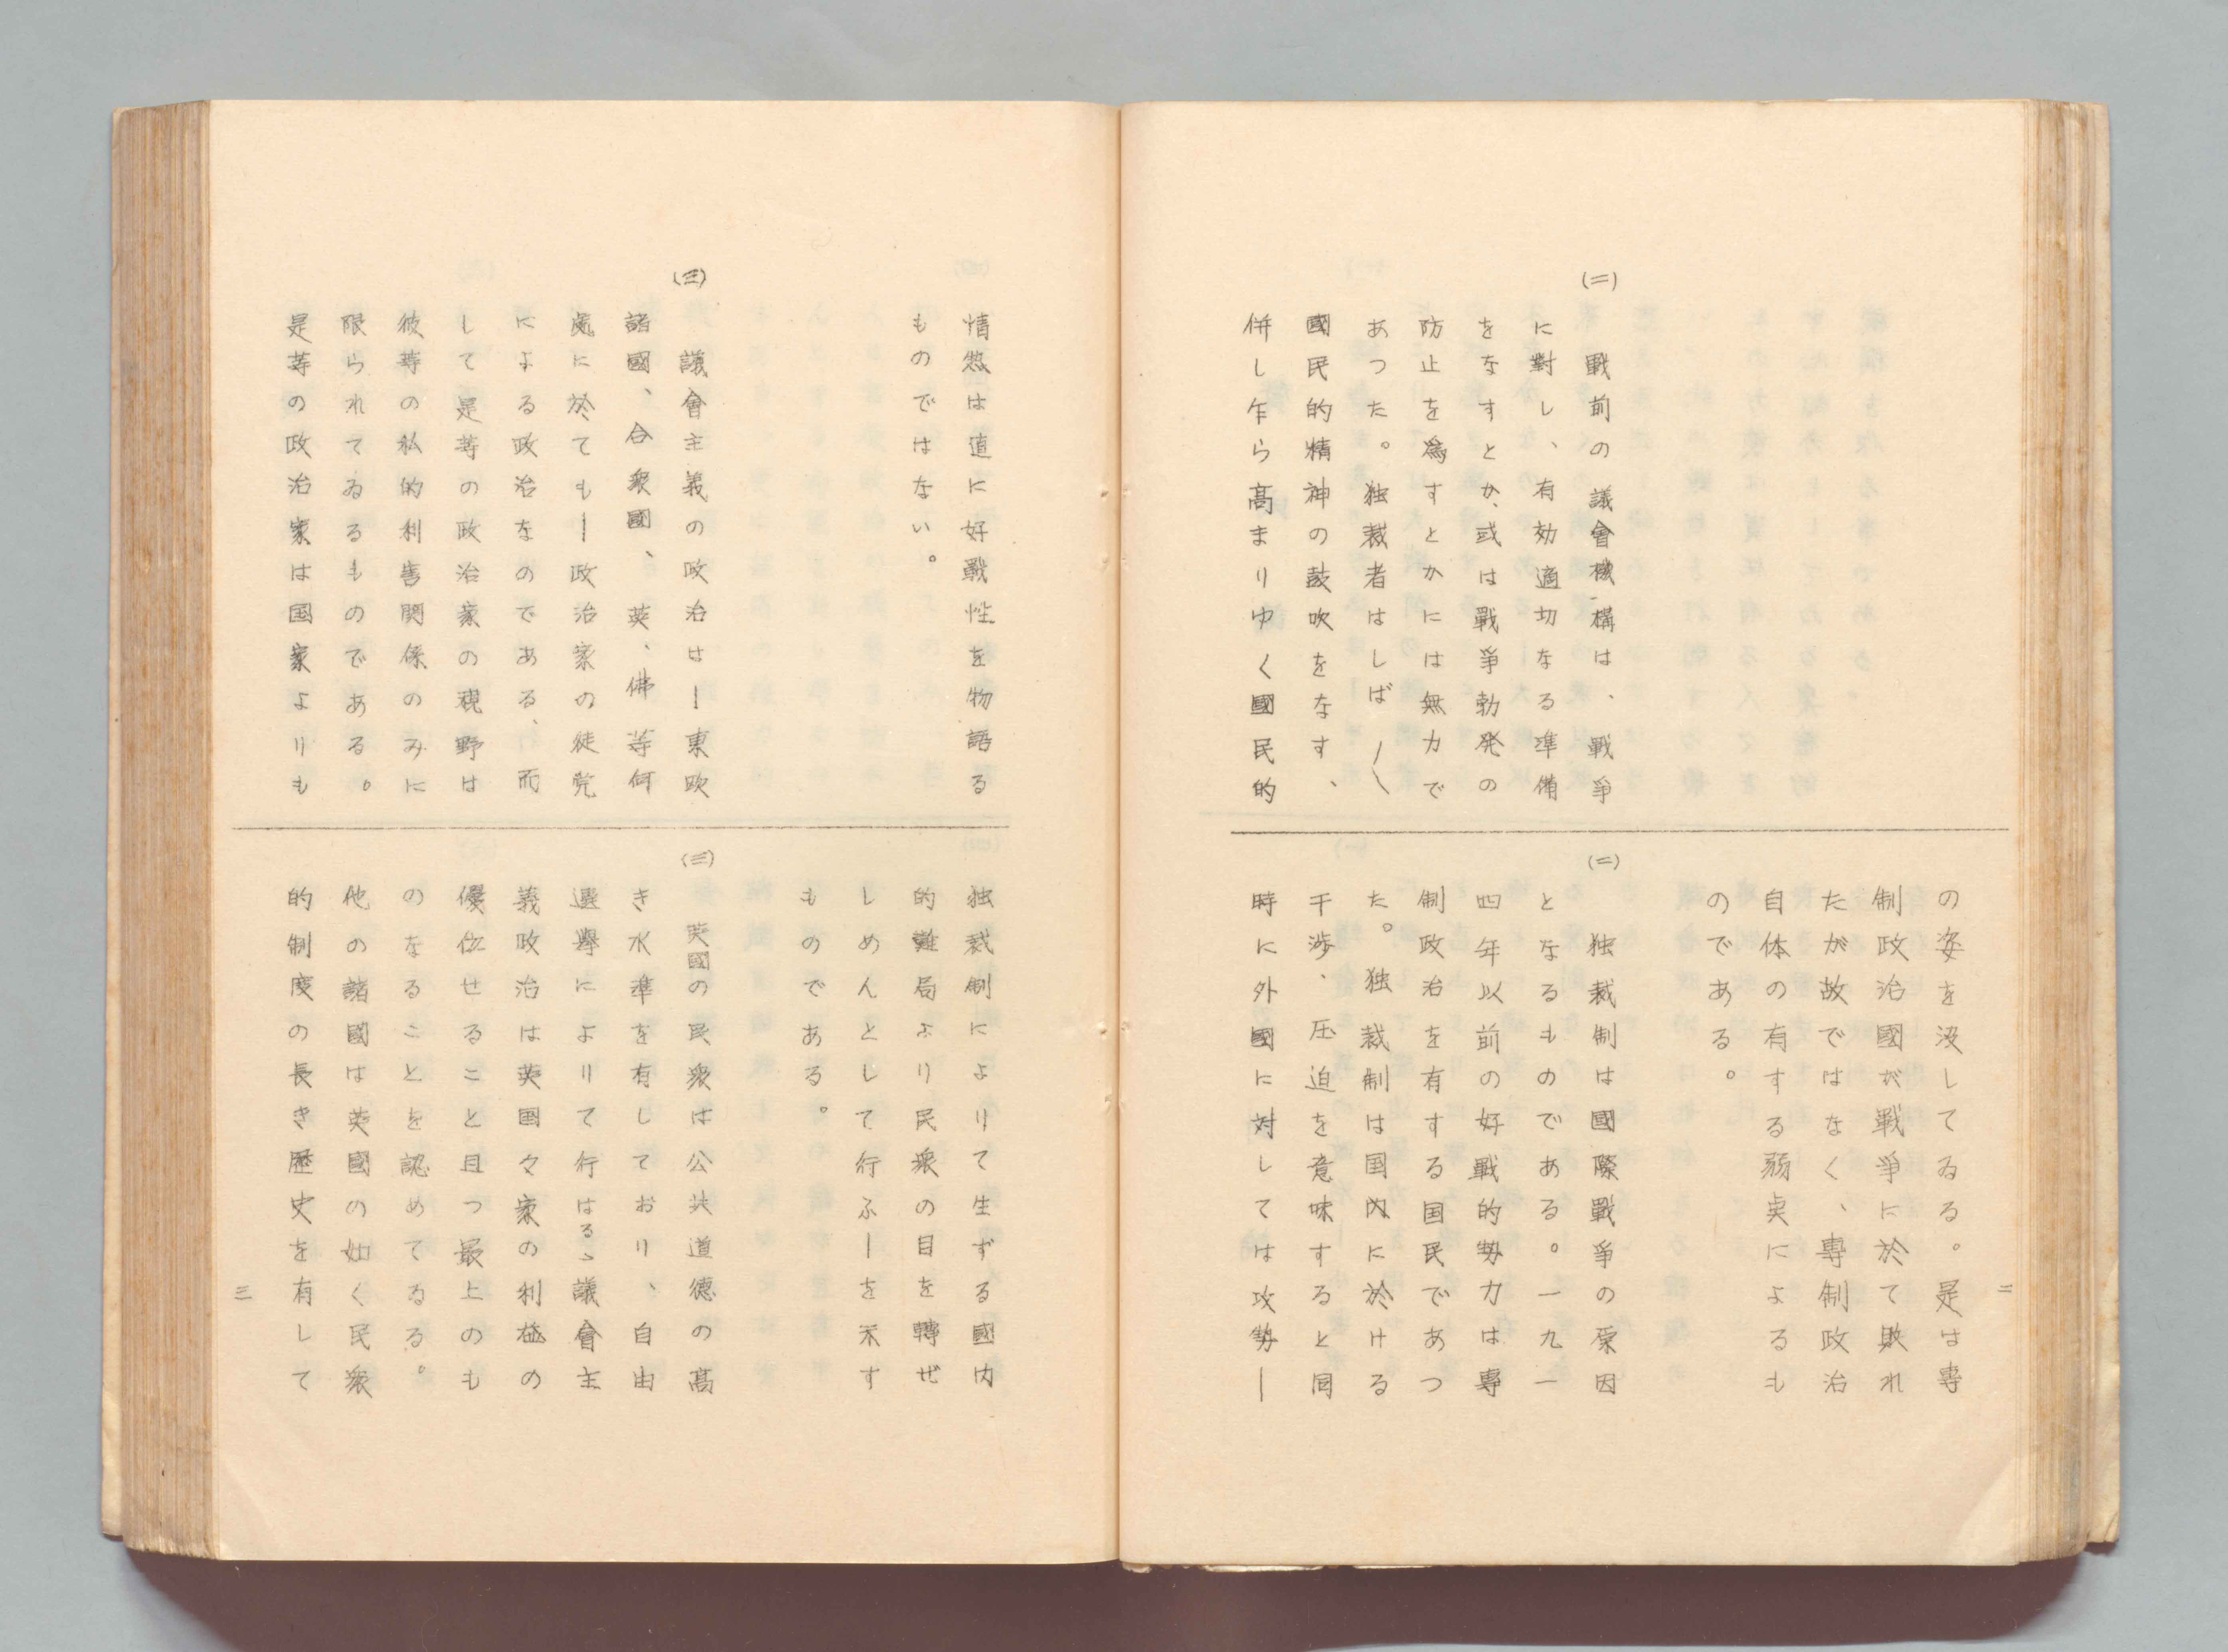 (二)
戰前の議會機構は、戰爭
に對し、有効適切なる準備
をなすとか、或は戰爭勃発の
防止を爲すとかには無力で
あつた。独裁者はしば〳〵
國民的精神の鼓吹をなす、
併し乍ら高まりゆく國民的
の姿を没してゐる。是は專
制政治國が戰爭に於て敗れ
たが故ではなく、專制政治
自体の有する弱奌によるも
のである。
(二)
独裁制は國際戰爭の原因
となるものである。一九一
四年以前の好戰的勢力は專
制政治を有する国民であつ
た。独裁制は国内に於ける
干渉、圧迫を意味すると同
時に外國に対しては攻勢ー
二
情熱は直に好戰性を物語る
ものではない。
(三)
議會主義の政治はー東欧
諸國、合衆國、英、佛等何
處に於てもー政治家の徒党
による政治なのである、而
して是等の政治家の視野は
彼等の私的利害関係のみに
限られてゐるものである。
是等の政治家は国家よりも
独裁制によりて生ずる國内
的難局より民衆の目を轉ぜ
しめんとして行ふーを示す
ものである。
(三)
英國の民衆は公共道德の高
き水準を有しており、自由
選擧によりて行はるゝ議會主
義政治は英国々家の利益の
優位せること且つ最上のも
のをなることを認めてゐる。
他の諸國は英國の如く民衆
的制度の長き歴史を有して
三